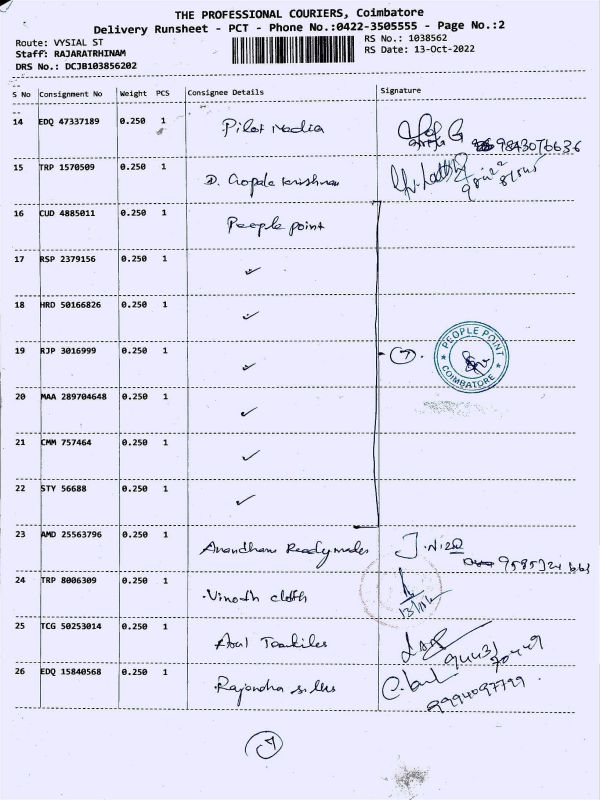 THE PROFESSIONAL COURIERS, Coimbatore
Delivery Runsheet - PCT - Phone No.:0422-3505555 - Page No.:2
Route: VYSIAL ST
RS No.: 1038562
Staff: RAJARATRHINAM
RS Date: 13-Oct-2022
DRS No.: DCJB103856202
S No Consignment No Weight PCS Consignee Details Signature
14 EDQ 47337189 0.250 1 Pilot Media 9843076636
15 TRP 1570509 0.250 1 D. Gopala krishnan
16 CUD 4885011 0.250 1 People point
17 RSP 2379156 0.250 1 ✓
18 HRD 50166826 0.250 1 ✓
19 RJP 3016999 0.250 1 ✓ 7. PEOPLE POINT COIMBATORE
20 MAA 289704648 0.250 1 ✓
21 CMM 757464 0.250 1 ✓
22 STY 56688 0.250 1 ✓
23 AMD 25563796 0.250 1 Anandham Readymades
24 TRP 8006309 0.250 1 Vinoth cloth
25 TCG 50253014 0.250 1 94431 70449
26 EDQ 15840568 0.250 1 Rajendra silks 9994097799
7